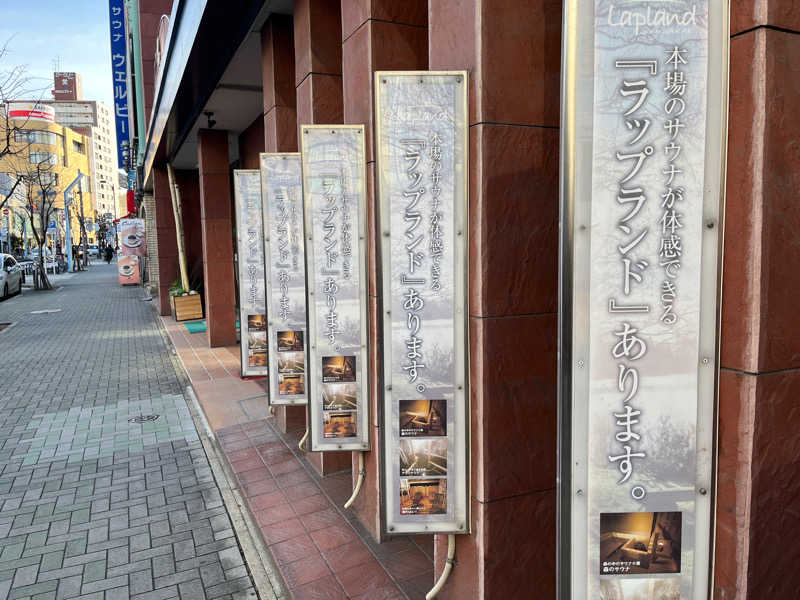 サウナ ウェルビー
Lapland
本場のサウナが体感できる
『ラップランド』あります。
森のサウナ
Lapland
本場のサウナが体感できる
『ラップランド』あります。
森のサウナ
本場のサウナが体感できる
『ラップランド』あります。
『ラップランド』あります。
ランド』あります。